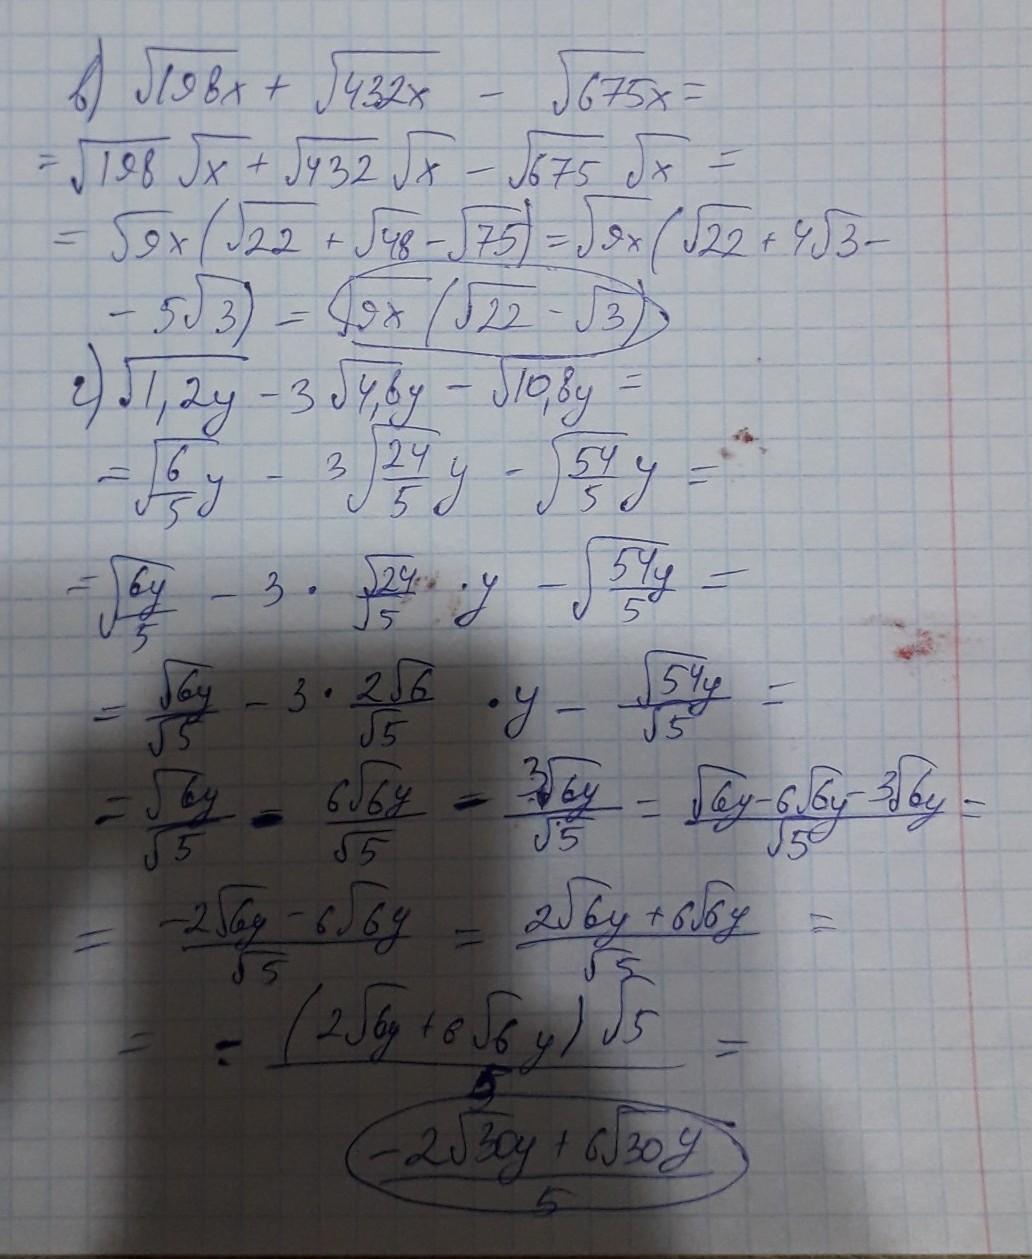 в) √198x + √432x − √675x =
= √198 √x + √432 √x − √675 √x =
= √9x (√22 + √48 − √75) = √9x (√22 + 4√3 −
− 5√3) = √9x (√22 − √3)
г) √1,2y − 3√4,8y − √10,8y =
= √6/5 y − 3√24/5 y − √54/5 y =
= √6y/5 − 3 · √24/√5 · y − √54y/5 =
= √6y/√5 − 3 · 2√6/√5 · y − √54y/√5 =
= √6y/√5 − 6√6y/√5 − 3√6y/√5 = √6y − 6√6y − 3√6y/√5 =
= −2√6y − 6√6y/√5 = 2√6y + 6√6y/√5 =
= − (2√6y + 6√6y)√5/5 =
−2√30y + 6√30y/5